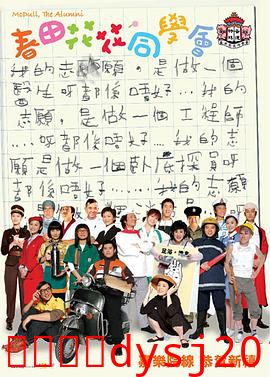 McDull, The Alumni
春田花花同學會
我的志願,是做一個
醫生呀都係唔好....我的
志願,是做一個工程師
....呀都係唔好....我的志
願是做一個臥底探員呀
都係唔好....我的志願
喜樂院線 恭賀新禧
dysj20